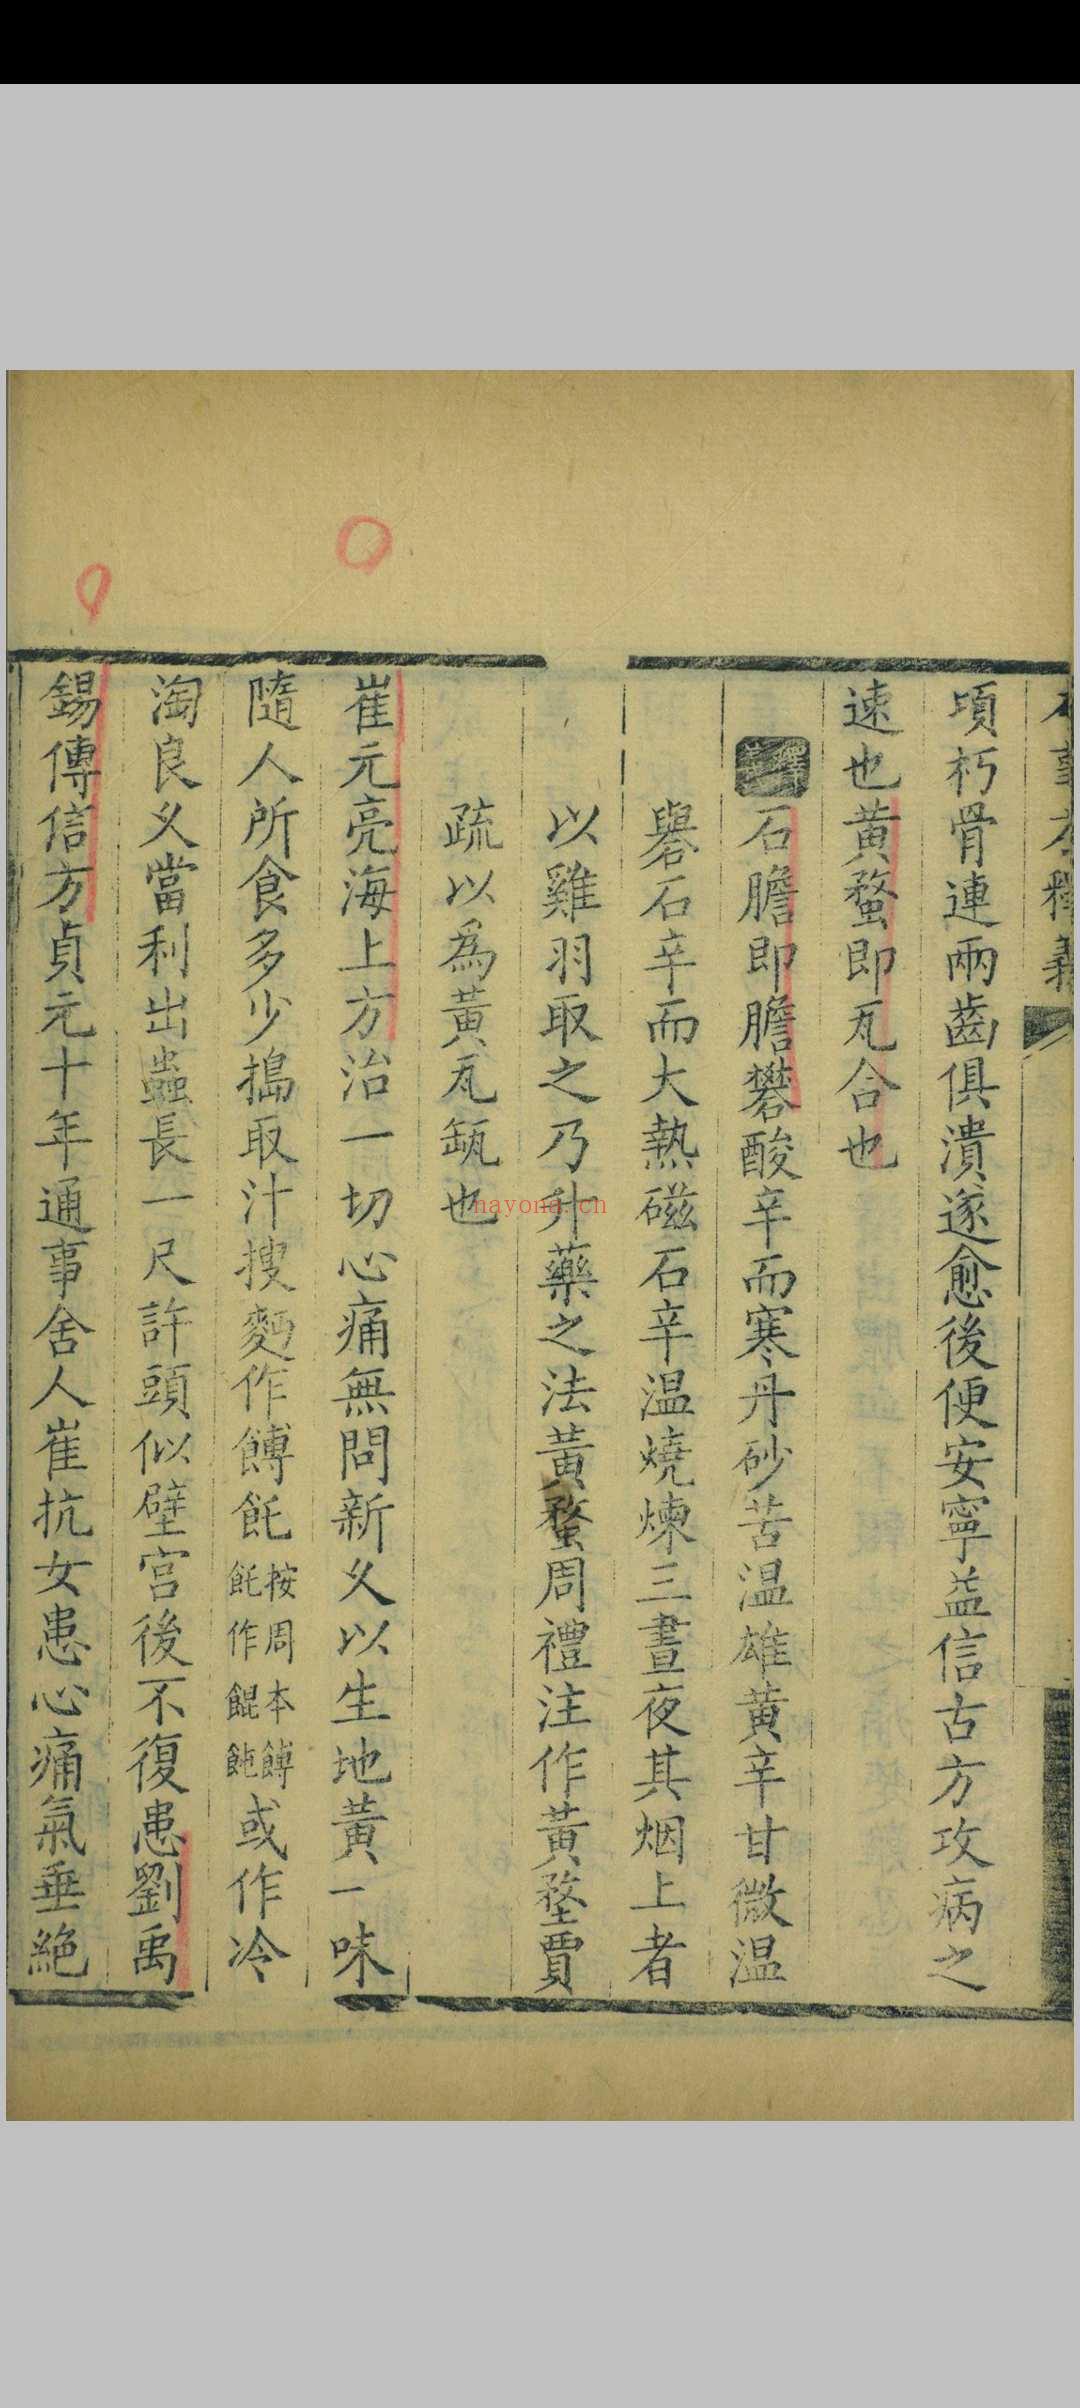 頃朽骨連兩齒俱潰遂愈後便安寧益信古方攻病之
速也黄蝥即瓦合也
釋義石膽即膽礬酸辛而寒丹砂苦温雄黄辛甘微温
礜石辛而大熱磁石辛温燒煉三晝夜其烟上者
以雞羽取之乃升藥之法黃蝥周禮注作黃堥賈
疏以爲黃瓦瓿也
崔元亮海上方治一切心痛無問新久以生地黃一味
隨人所食多少搗取汁搜麪作餺飥按周本餺飥作餛飩或作冷
淘良久當利出蟲長一尺許頭似壁宫後不復患劉禹
錫傳信方貞元十年通事舍人崔抗女患心痛氣垂絶
nayona.cn